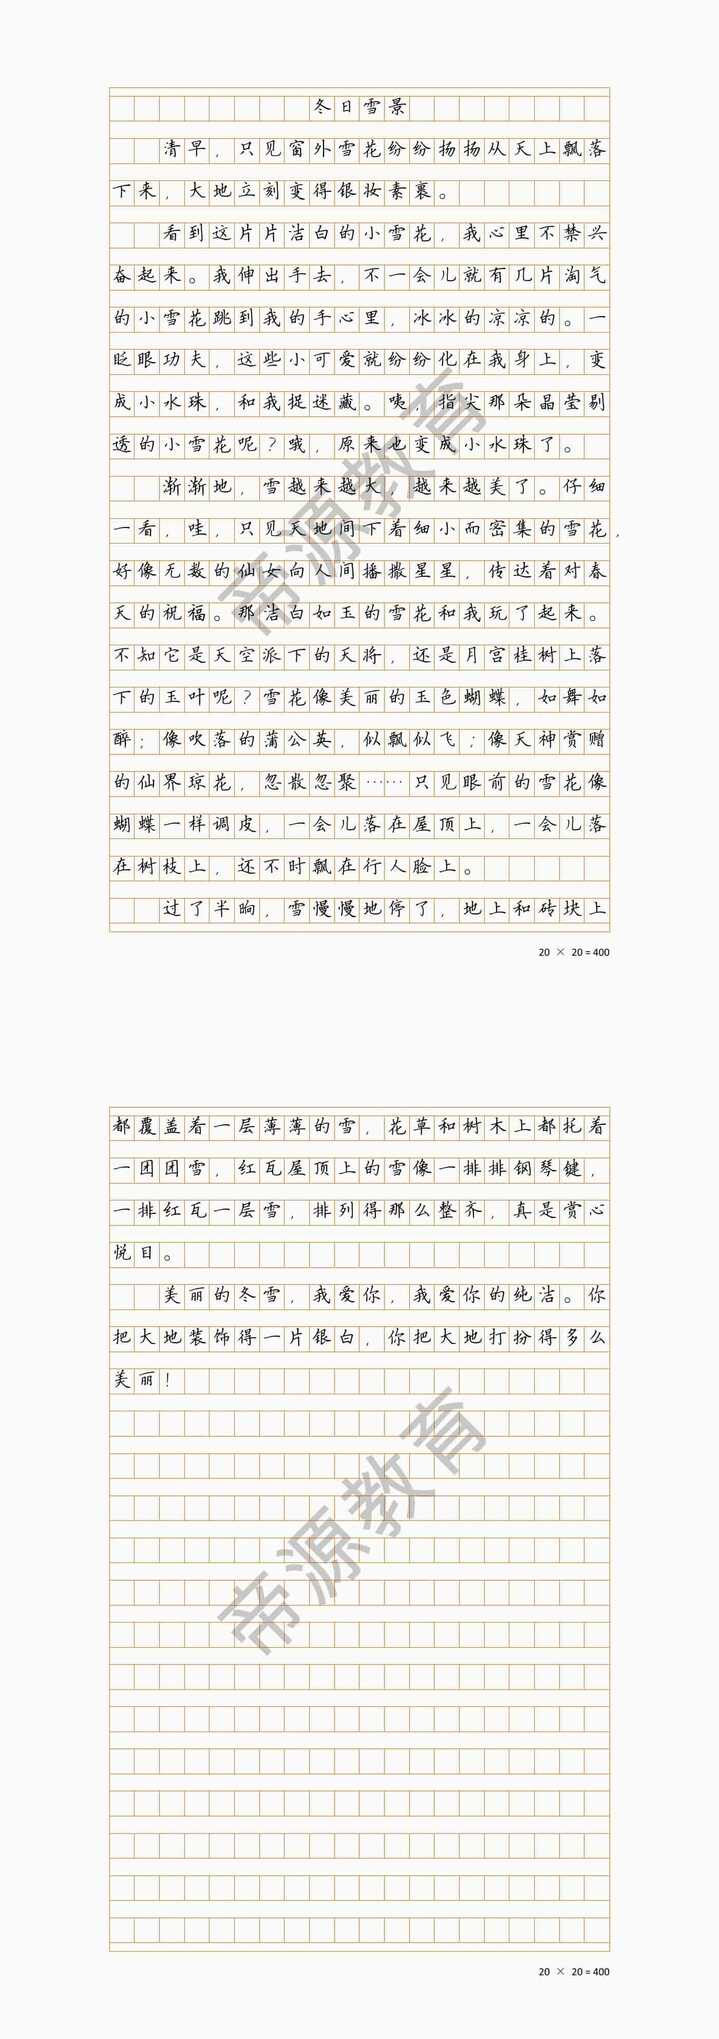 冬日雪景
清早，只见窗外雪花纷纷扬扬从天上飘落
下来，大地立刻变得银妆素裹。
看到这片片洁白的小雪花，我心里不禁兴
奋起来。我伸出手去，不一会儿就有几片淘气
的小雪花跳到我的手心里，冰冰的凉凉的。一
眨眼功夫，这些小可爱就纷纷化在我身上，变
成小水珠，和我捉迷藏。咦，指尖那朵晶莹剔
透的小雪花呢？哦，原来也变成小水珠了。
渐渐地，雪越来越大，越来越美了。仔细
一看，哇，只见天地间下着细小而密集的雪花，
好像无数的仙女向人间播撒星星，传达着对春
天的祝福。那洁白如玉的雪花和我玩了起来。
不知它是天空派下的天将，还是月宫桂树上落
下的玉叶呢？雪花像美丽的玉色蝴蝶，如舞如
醉；像吹落的蒲公英，似飘似飞；像天神赏赠
的仙界琼花，忽散忽聚……只见眼前的雪花像
蝴蝶一样调皮，一会儿落在屋顶上，一会儿落
在树枝上，还不时飘在行人脸上。
过了半晌，雪慢慢地停了，地上和砖块上
20 × 20 = 400
都覆盖着一层薄薄的雪，花草和树木上都托着
一团团雪，红瓦屋顶上的雪像一排排钢琴键，
一排红瓦一层雪，排列得那么整齐，真是赏心
悦目。
美丽的冬雪，我爱你，我爱你的纯洁。你
把大地装饰得一片银白，你把大地打扮得多么
美丽！
20 × 20 = 400
帝源教育
帝源教育